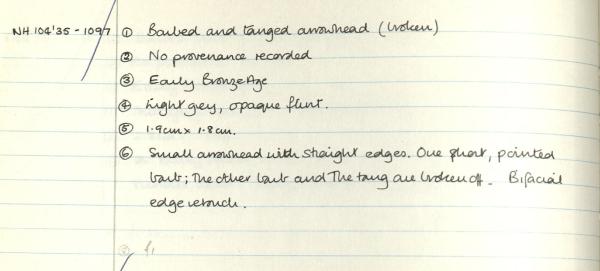 NH.104'35-1097 ① Barbed and tanged arrowhead (broken)
② No provenance recorded
③ Early Bronze Age
④ Light grey, opaque flint.
⑤ 1.9cm x 1.8cm.
⑥ Small arrowhead with straight edges. One short, pointed
barb; The other barb and The tang are broken off. Bifacial
edge retouch.